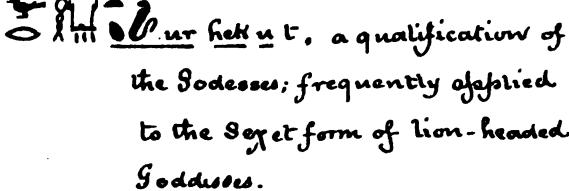 ur hek u t, a qualification of
the Godesses; frequently applied
to the Seχet form of lion-headed
Goddesses.